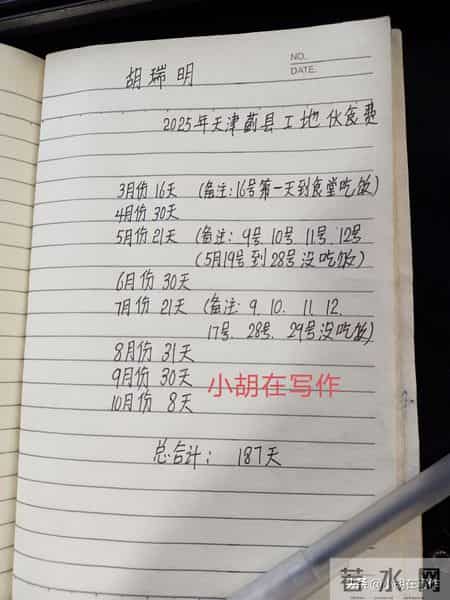 NO.
DATE.
胡瑞明
2025年天津蓟县工地伙食费
3月份 16天 (备注:16号第一天到食堂吃饭)
4月份 30天
5月份 21天 (备注: 9号 10号 11号、12号
(5月19号到28号没吃饭)
6月份 30天
7月份 21天 (备注: 9、10、11、12、
17号、28号、29号没吃饭)
8月份 31天
9月份 30天
小胡在写作
10月份 8天
总合计: 187天
头条 @小胡在写作
若水网